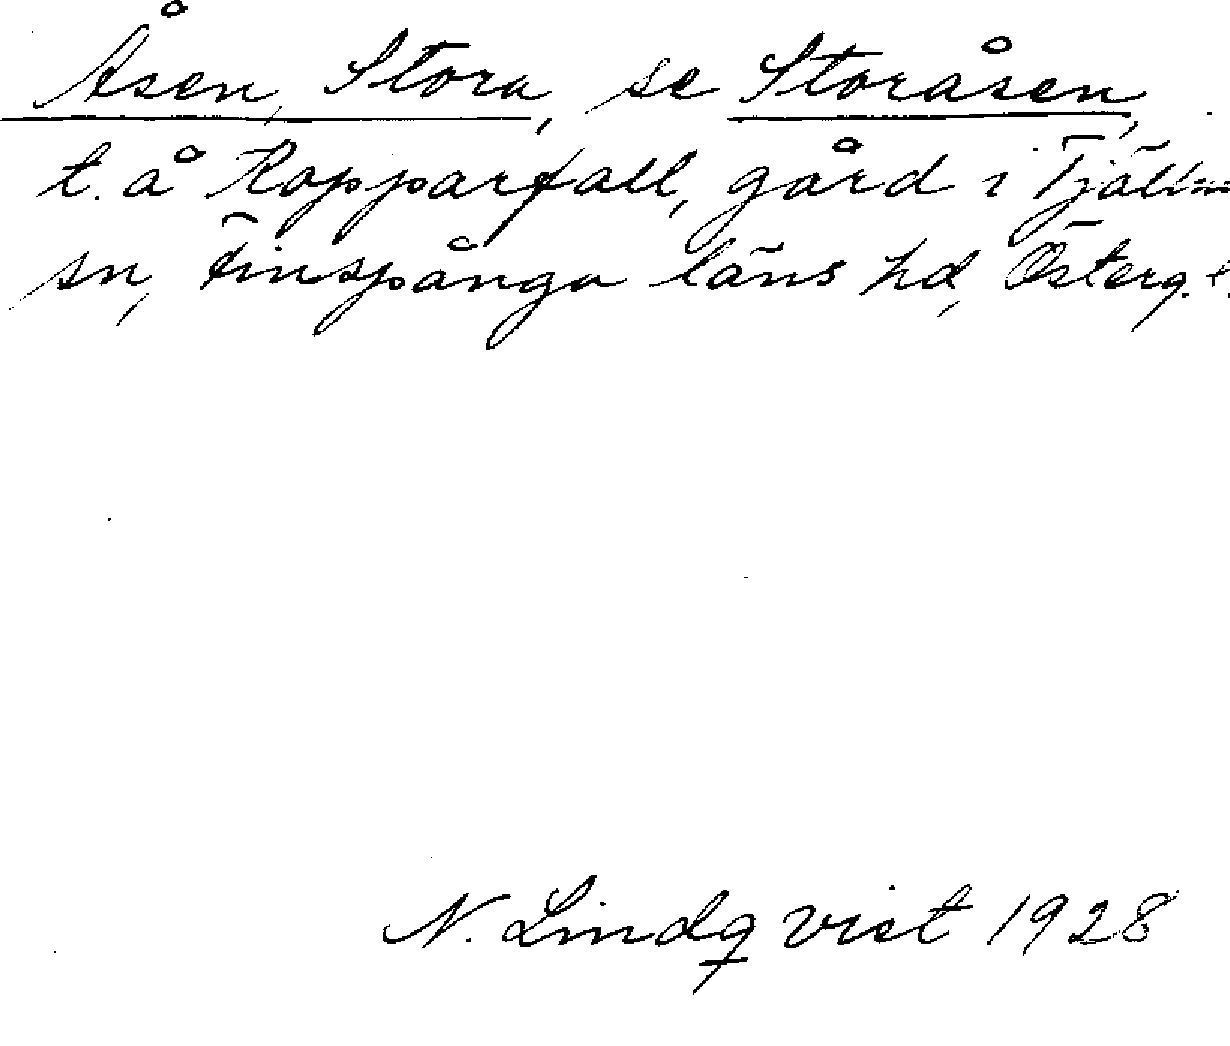 Åsen, Stora, se Storåsen,
t. å Kopparfall, gård i Tjällm
sn, Finspånga läns hd, Österg. l.
N. Lindqvist 1928